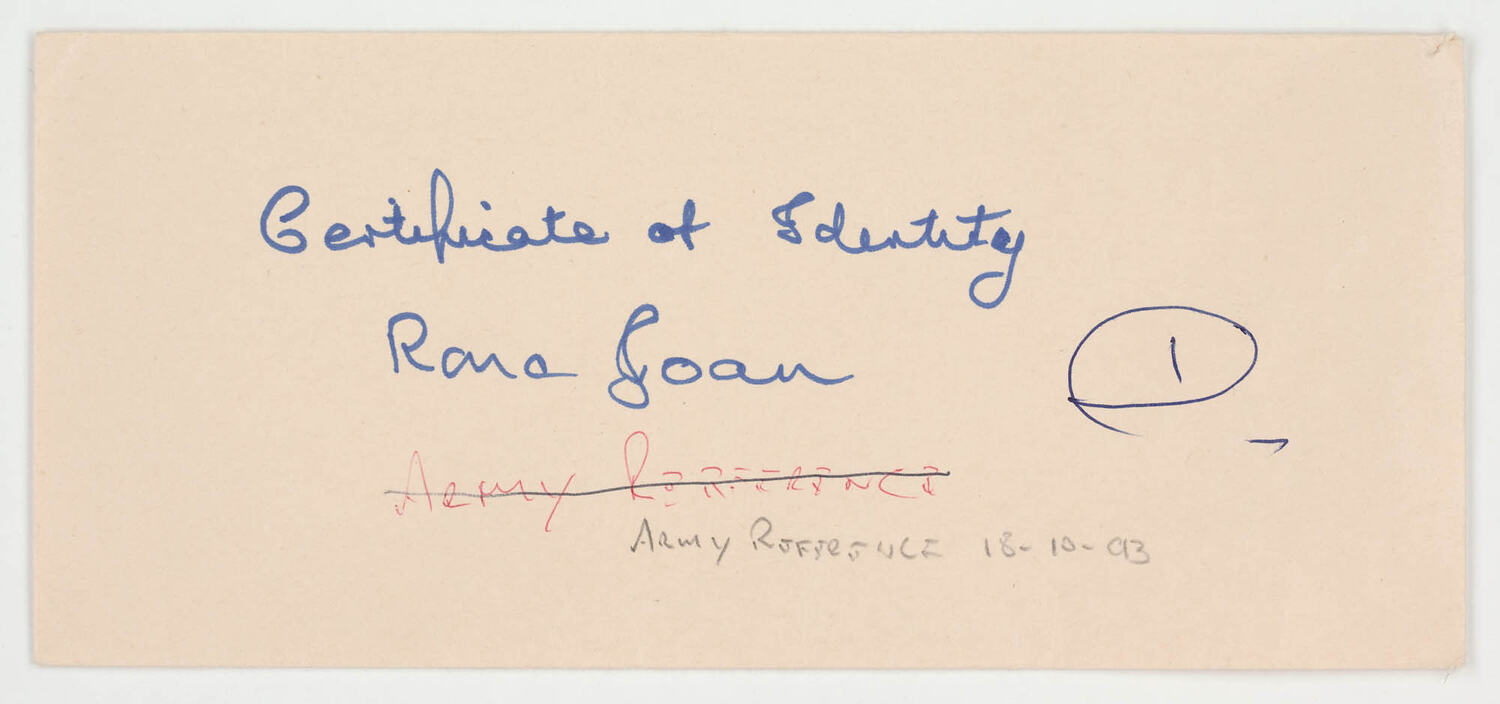 Certificate of Identity
Rona Joan
1
Army Reference
Army Reference 18-10-93